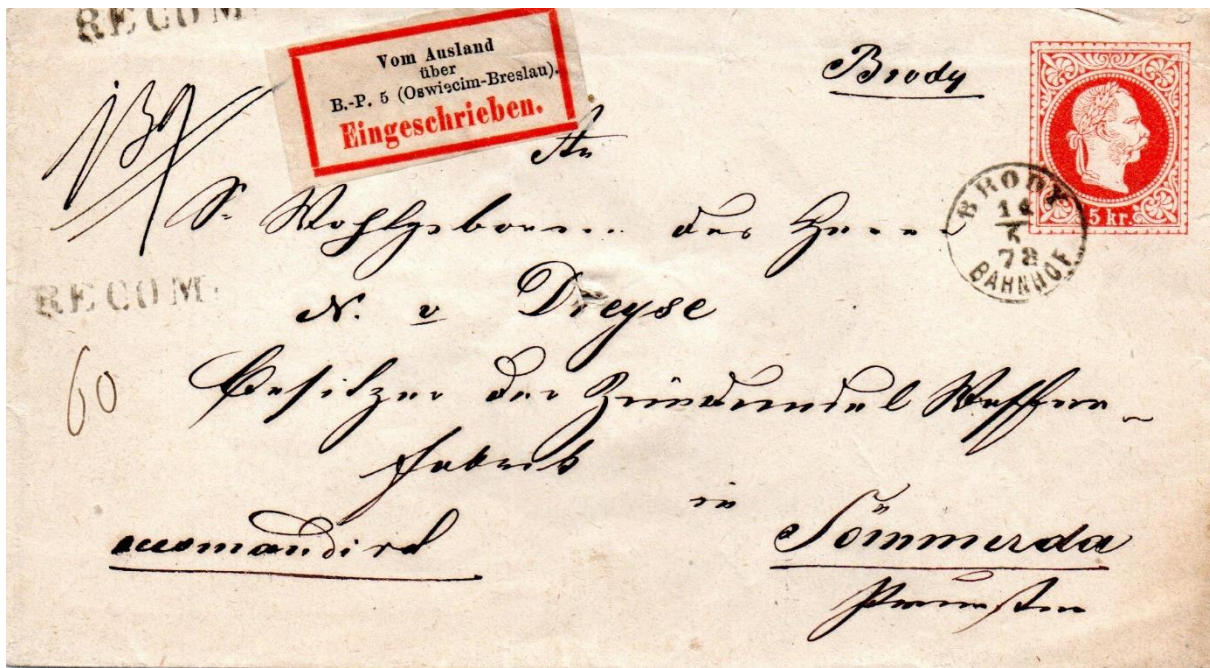 RECOM.
Vom Ausland
über
B.-P. 5 (Oswiecim-Breslau).
Eingeschrieben.
Brody
5 kr.
BRODY
14
5
73
BAHNHOF
139
An
Sr Wohlgeboren des Herrn
RECOM.
N. v Dreyse
60
Besitzer der Zündnadel Waffen-
Fabrik
in
recomandird
Sömmerda
Preussen